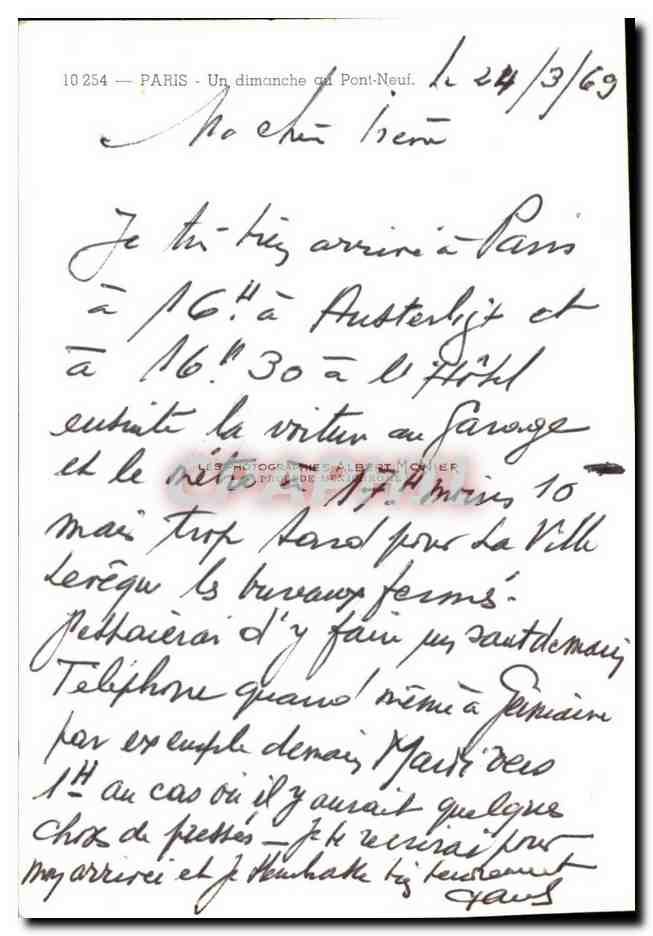 10 254 — PARIS - Un dimanche au Pont-Neuf. Le 24/3/69
Ma chère Irène
Je suis bien arrivé à Paris
à 16.H à Austerlitz et
à 16.H 30 à l'Hôtel
ensuite la voiture au Garage
et le métro à 17.H moins 10
LES PHOTOGRAPHIES ALBERT MONIER
mais trop tard pour La Ville
Levêque les bureaux fermés.
J'essaierai d'y faire un saut demain
Téléphone quand même à
par exemple demain Mardi vers
1H au cas où il y aurait quelque
chose de pressés — Je te récrirai pour
mon arrivée et Je t'embrasse bien tendrement